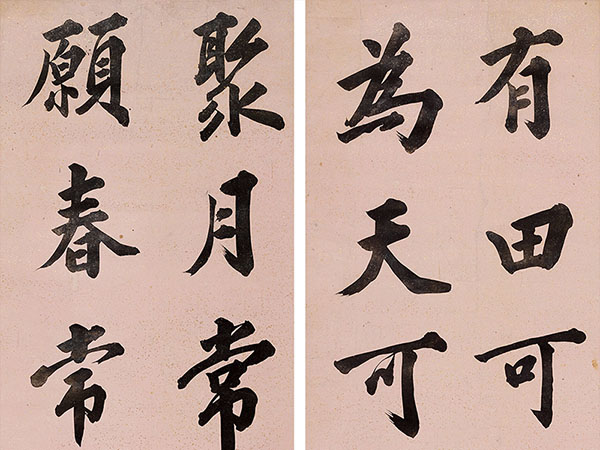 有田可
為天可
聚月常
願春常